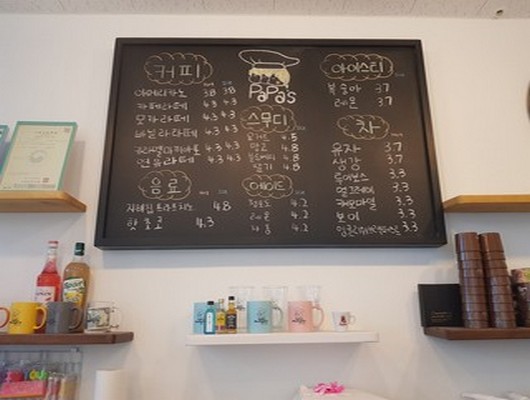 커피
아메리카노 3.8 3.8
카페라떼 4.3 4.3
모카라떼 4.3 4.3
바닐라라떼 4.3 4.3
카라멜마키아토 4.3 4.3
연유라떼 4.3 4.3
음료
4.8
핫초코 4.3
PaPa's
스무디
4.5
망고 4.8
4.8
딸기 4.8
에이드
청포도 4.2
레몬 4.2
자몽 4.2
아이스티
복숭아 3.7
레몬 3.7
차
유자 3.7
생강 3.7
루이보스 3.3
얼그레이 3.3
캐모마일 3.3
보이 3.3
3.3